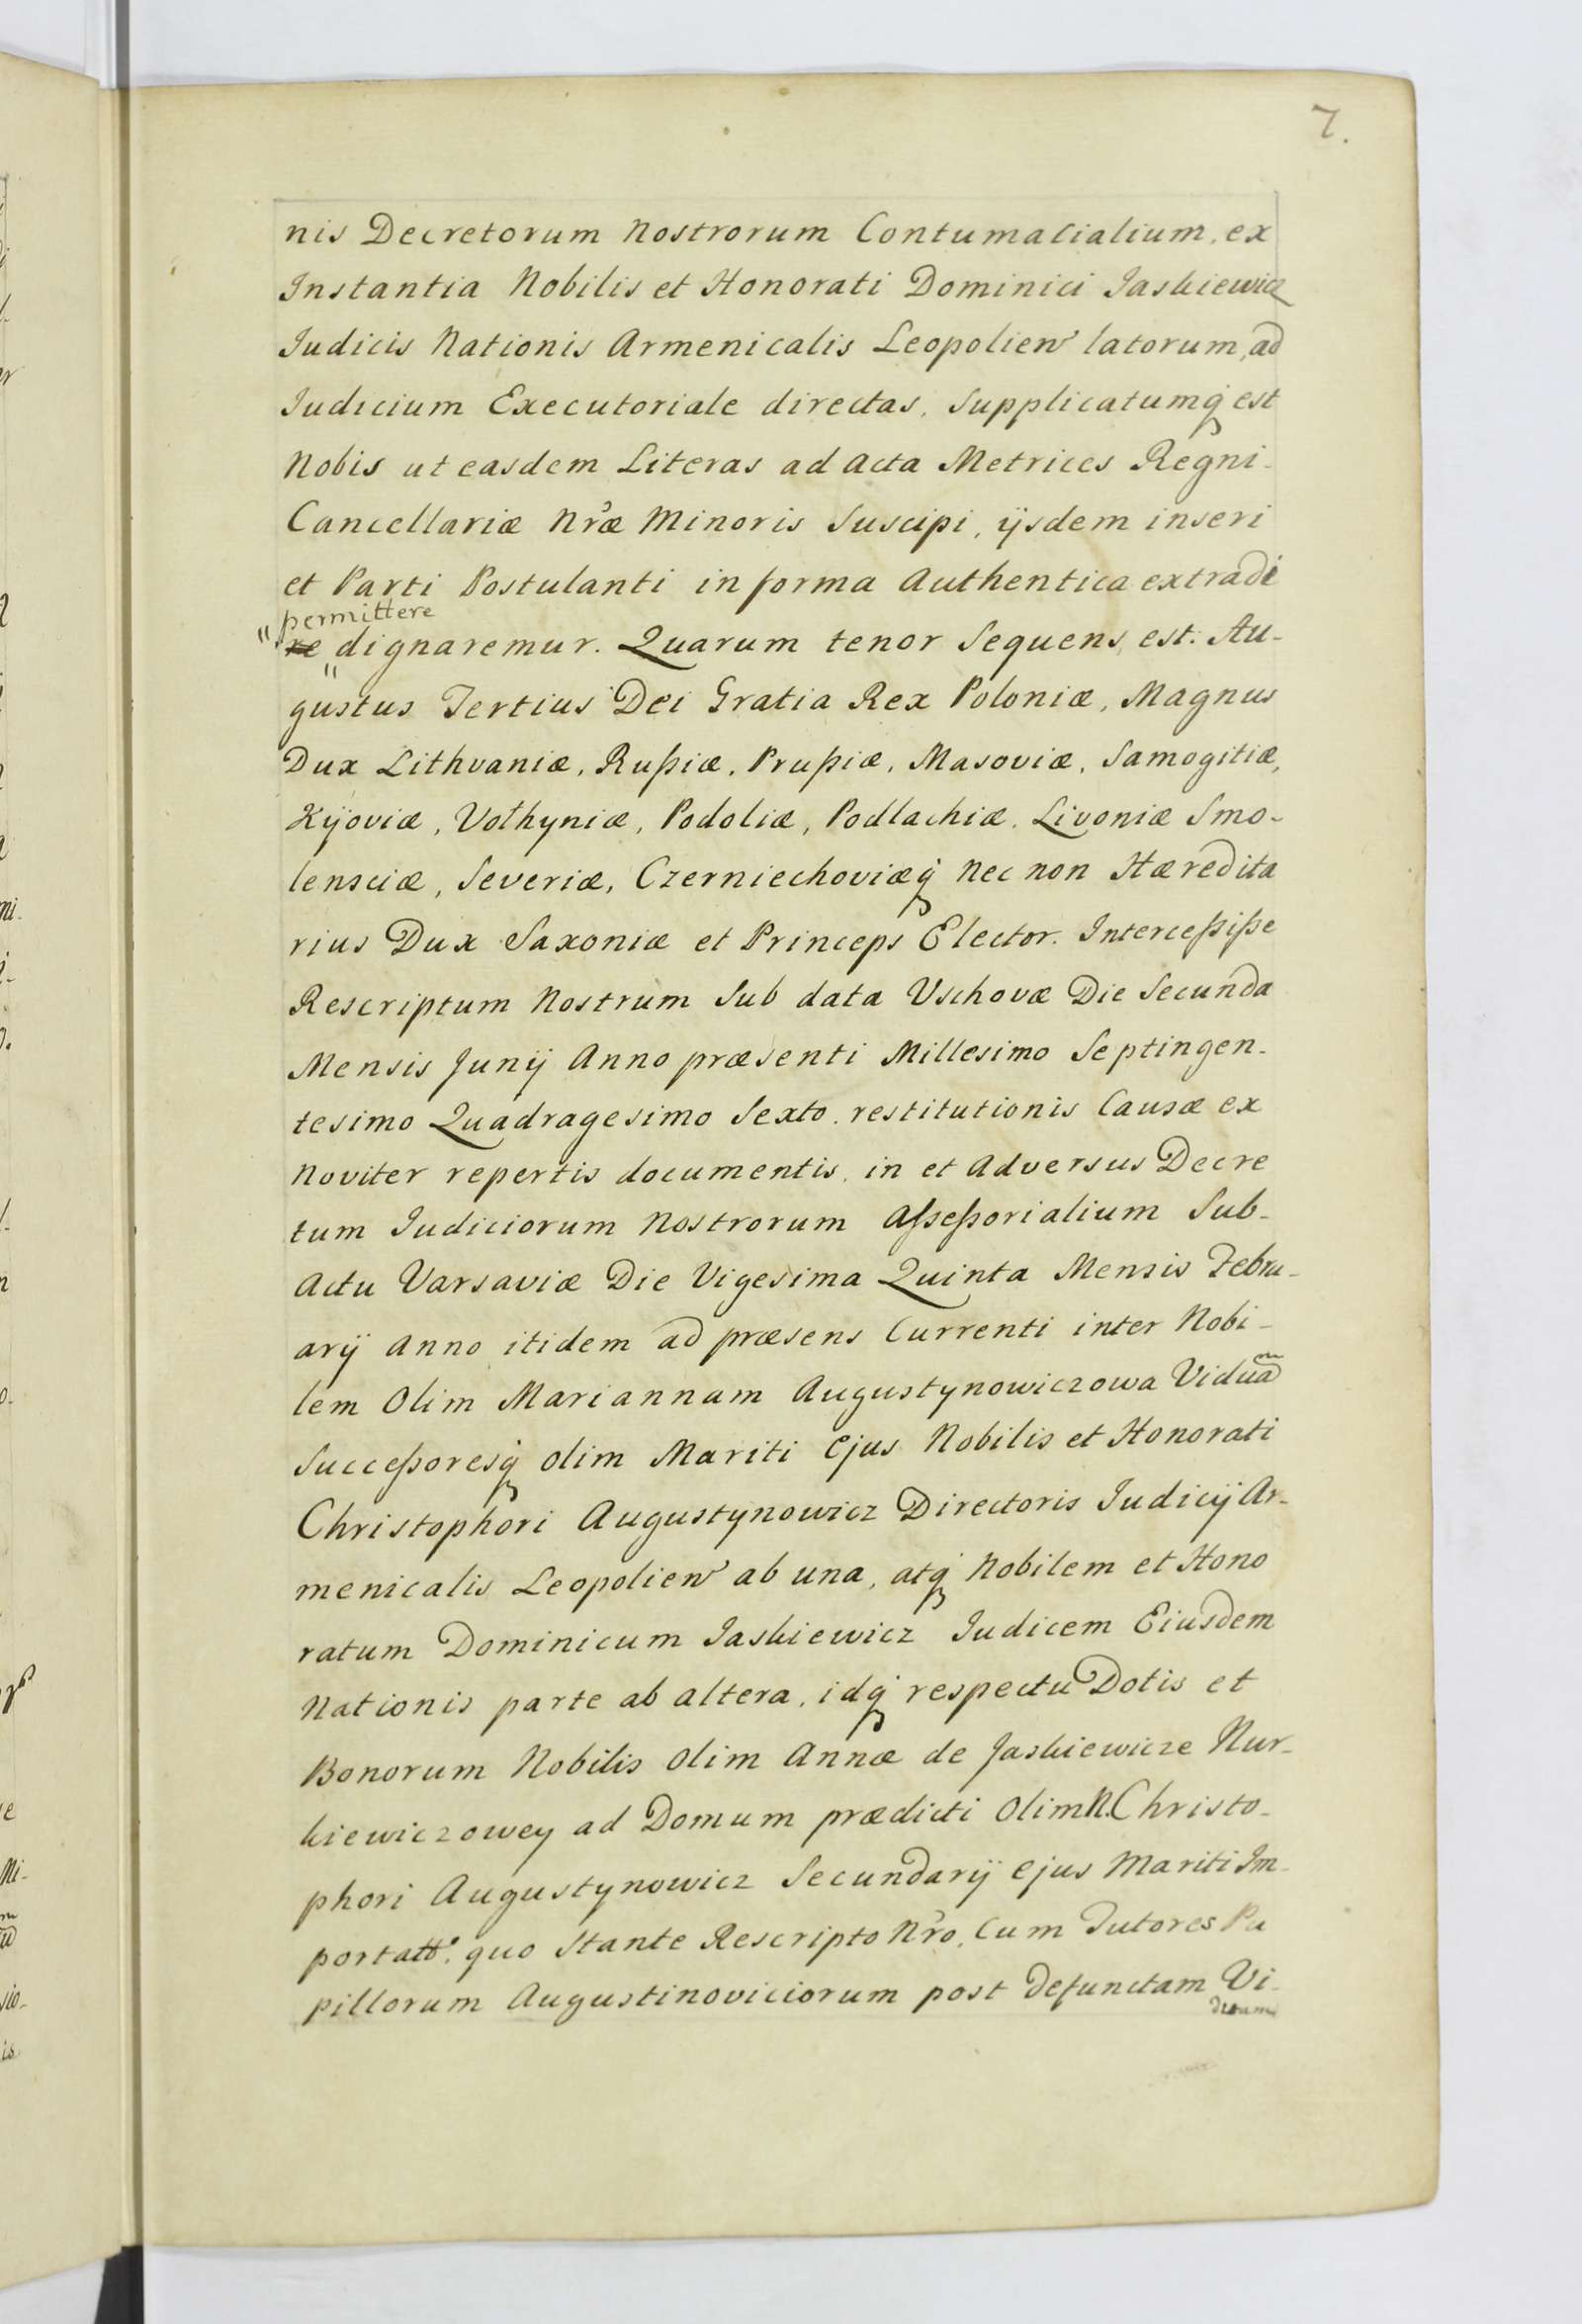 7.
nis Decretorum Nostrorum Contumacialium, ex
Instantia Nobilis et Honorati Dominici Jaskiewicz
Judicis Nationis Armenicalis Leopolien̄ latorum, ad
Judicium Executoriale directas, Supplicatumq́ est
Nobis ut easdem Literas ad Acta Metrices Regni
Cancellariæ Nr̃æ Minoris Suscipi, ijsdem inseri
et Parti Postulanti in forma Authentica extradi
permittere
"re dignaremur. Quarum tenor Sequens est. Au-
gustus Tertius Dei Gratia Rex Poloniæ, Magnus
Dux Lithvaniæ, Rußiæ, Prußiæ, Masoviæ, Samogitiæ,
Kijoviæ, Volhyniæ, Podoliæ, Podlachiæ, Livoniæ Smo-
lensciæ, Severiæ, Czerniechoviæq́ Nec non Hæredita
rius Dux Saxoniæ et Princeps Elector. Interceßiße
Rescriptum Nostrum Sub data Vschovæ Die Secunda
Mensis Junij Anno præsenti Millesimo Septingen-
tesimo Quadragesimo Sexto, restitutionis Causæ ex
Noviter repertis documentis, in et Adversus Decre
tum Judiciorum Nostrorum Aßeßorialium Sub-
Actu Varsaviæ Die Vigesima Quinta Mensis Febru-
arij Anno itidem ad præsens Currenti inter Nobi-
lem Olim Mariannam Augustynowiczowa Viduam
Succeßoresq́ olim Mariti Ejus Nobilis et Honorati
Christophori Augustynowicz Directoris Judicij Ar-
menicalis Leopolien̄ ab una, atq́ Nobilem et Hono
ratum Dominicum Jaskiewicz Judicem Eiusdem
Nationis parte ab altera, idq́ respectu Dotis et
Bonorum Nobilis olim Annæ de Jaskiewicze Nur-
kiewiczowey ad Domum prædicti Olim N. Christo-
phori Augustynowicz Secundarij Ejus Mariti Im-
portatt°. quo Stante Rescripto Nr̃o, Cum Tutores Pu
pillorum Augustinoviciorum post defunctam Vi-